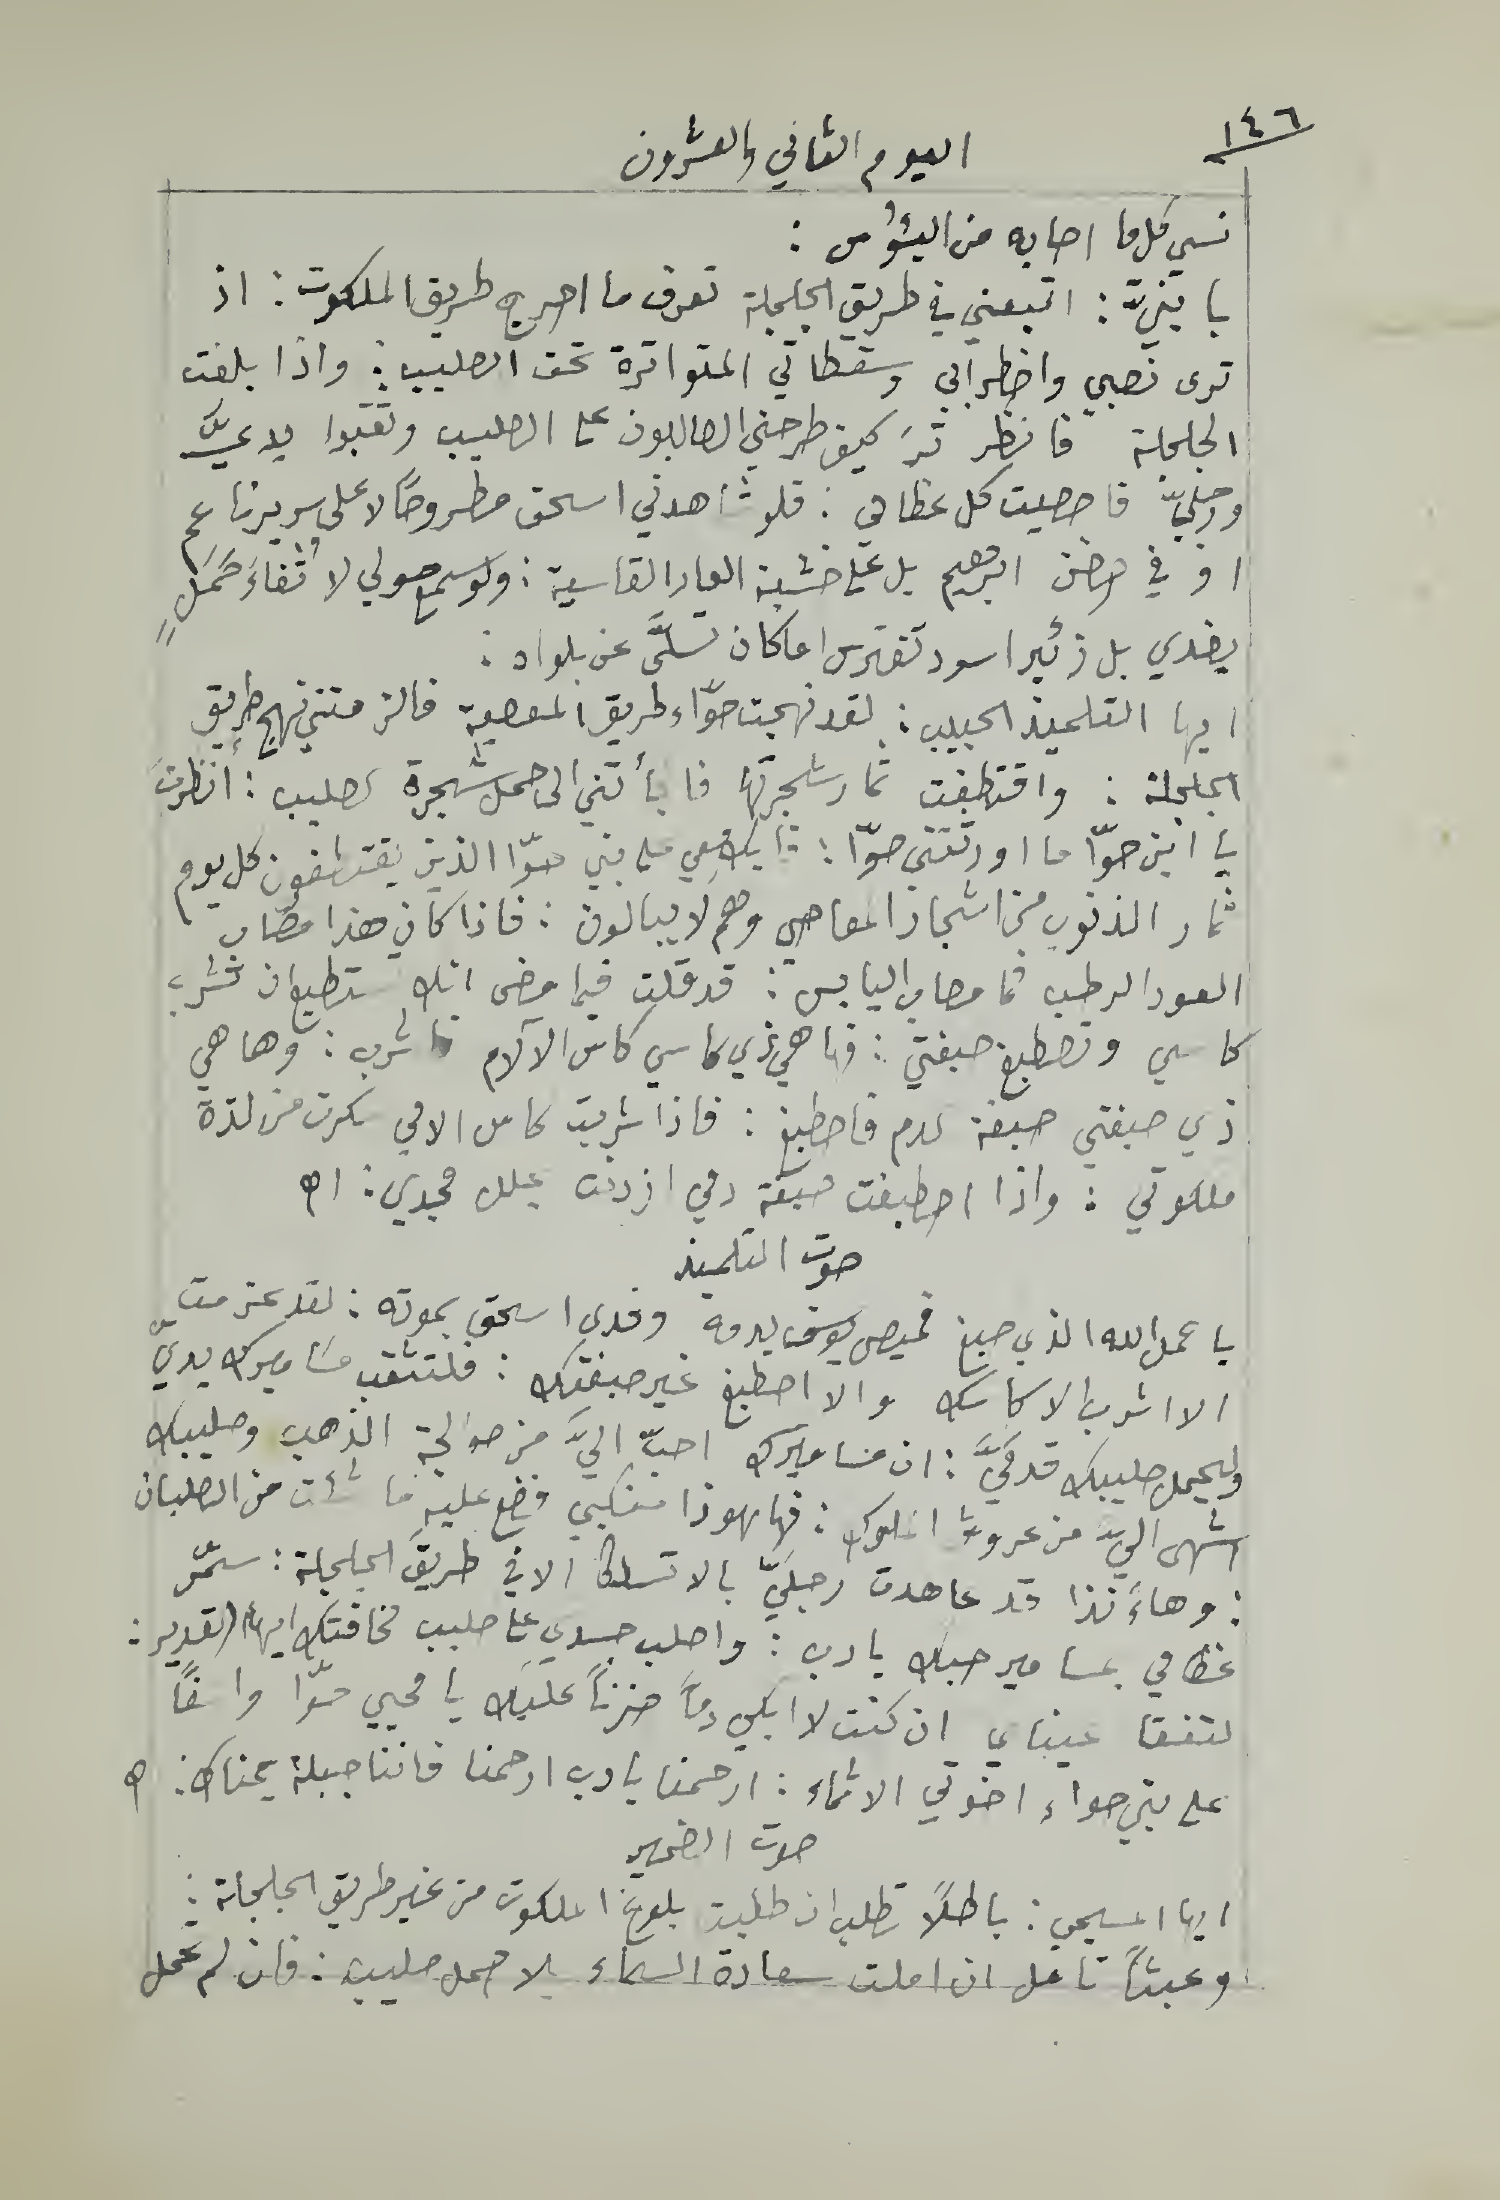 ١٤٦
اليوم الثاني والعشرون
نسي كل ما اصابه من البؤس :
يا بنيَّ : اتبعني في طريق الجلجلة تعرف ما احرج طريق الملكوت : اذ
ترى نصبي واضطرابي وسقطاتي المتواترة تحت الصليب : واذا بلغت
الجلجلة فانظر ترَ كيف طرحني الصالبون على الصليب وثقبوا يديَّ
ورجليَّ فاحصيت كل عظامي : فلو شاهدني اسحق مطروحًا لا على سرير ناعم
او في حضن ابرهيم بل على خشبة العار القاسية : ولو سمع حولي لا ثغاءَ حَمَلٍ
يفدي بل زئير اسود تفترس اما كان تسلَّى عن بلواه :
ايها التلميذ الحبيب : لقد نهجت حوّاء طريق المعصية فالزمتني نهج طريق
الجلجلة : واقتطفت ثمار شجرتها فالجأتني الى حمل شجرة الصليب : انظرنَ
يا ابن حوّا ما اورثتني حوّا : فابكِ معي على بني حوّا الذين يقتطفون كل يوم
ثمار الذنوب من اشجار المعاصي وهم لا يبالون : فاذا كان هذا مصاب
العود الرطب فما مصاب اليابس : قد قلت فيما مضى انك تستطيع ان تشرب
كاسي وتصطبغ صبغتي : فها هي ذي كاسي كاس الآلام فاشرب : وها هي
ذي صبغتي صبغة الدم فاصطبغ : فاذا شربت كاس الامي سكرت من لذة
ملكوتي : واذا اصطبغت صبغة دمي ازدنت بحلل مجدي : اه
صوت التلميذ
يا حمل الله الذي صبغ قميص يوسف بدمه وفدى اسحق بموته : لقد عزمت
الا اشرب الا كاسك والا اصطبغ غير صبغتك : فلتثقب مساميرك يديَّ
وليحمل صليبك قدميَّ : ان مساميرك احبّ اليَّ من صوالجة الذهب وصليبك
اشهى اليَّ من عروش الملوك : فها هوذا منكبي فضع عليهِ ما شئت من الصلبان
: وهاءَنذا قد عاهدت رجليَّ بالا تسلكا الا في طريق الجلجلة : سمّر
عظامي بمسامير حبك يا رب : واصلب جسدي على صليب مخافتك ايها القدير :
لتفقا عيناي ان كنت لا ابكي دمًا حزنًا عليك يا محيي حوّا واسفًا
على بني حواء اخوتي الاثماء : ارحمنا يا رب ارحمنا فاننا جبلة يمناك : اه
صوت الضمير
ايها المسيحي : باطلًا تطلب ان طلبت بلوغ الملكوت من غير طريق الجلجلة :
وعبثًا تامل ان املت سعادة السماء بلا حمل صليب : فان لم تحمل